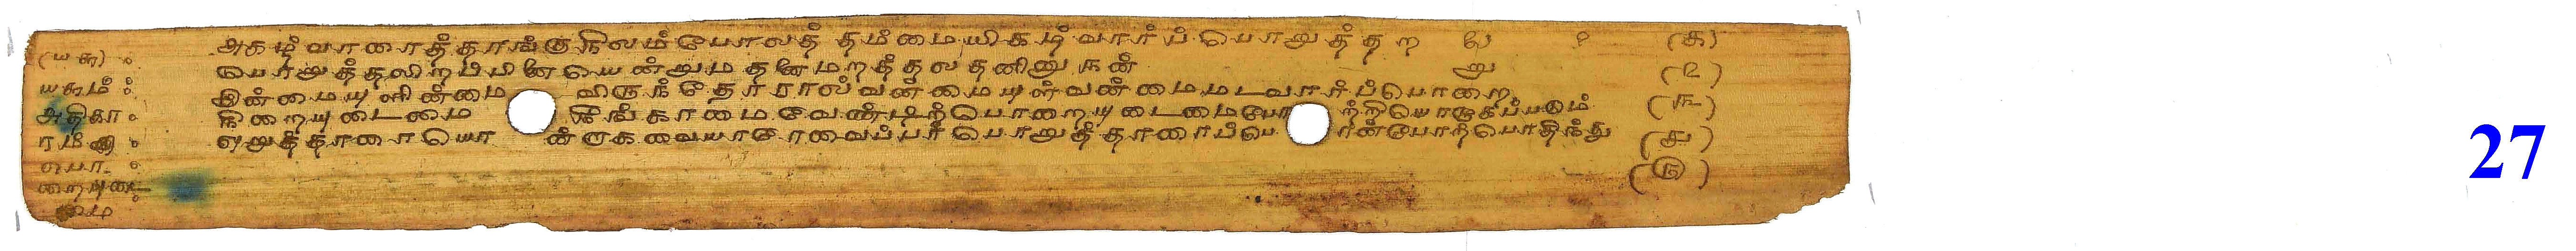 (யசு) ஃ அகழ் வாரைத் தாங்குநிலம் போலத் தம்மையிகழ் வார்ப் பொறுத்தற லே (க)
யசும் ஃ பொறுத்தலிறப்பினை யென்றும தனைமறத்தல தனினுநன் று (உ)
அதிகா ஃ இன்மையுளின்மை விருந்தோரால் வன்மையுள் வன்மைமடவார்ப்பொறை (ங)
நிறையுடைமை நீங்காமைவேண்டிற்பொறையுடைமைபோ ற்றியொழுகப்படும் (ச)
ஒறுத்தாரையொ ன்றாகவையாரேவைப்பர் பொறுத்தாரைப்பொ ன்போற்பொதிந்து (ரு)
பொ
றையுடை
மை
27